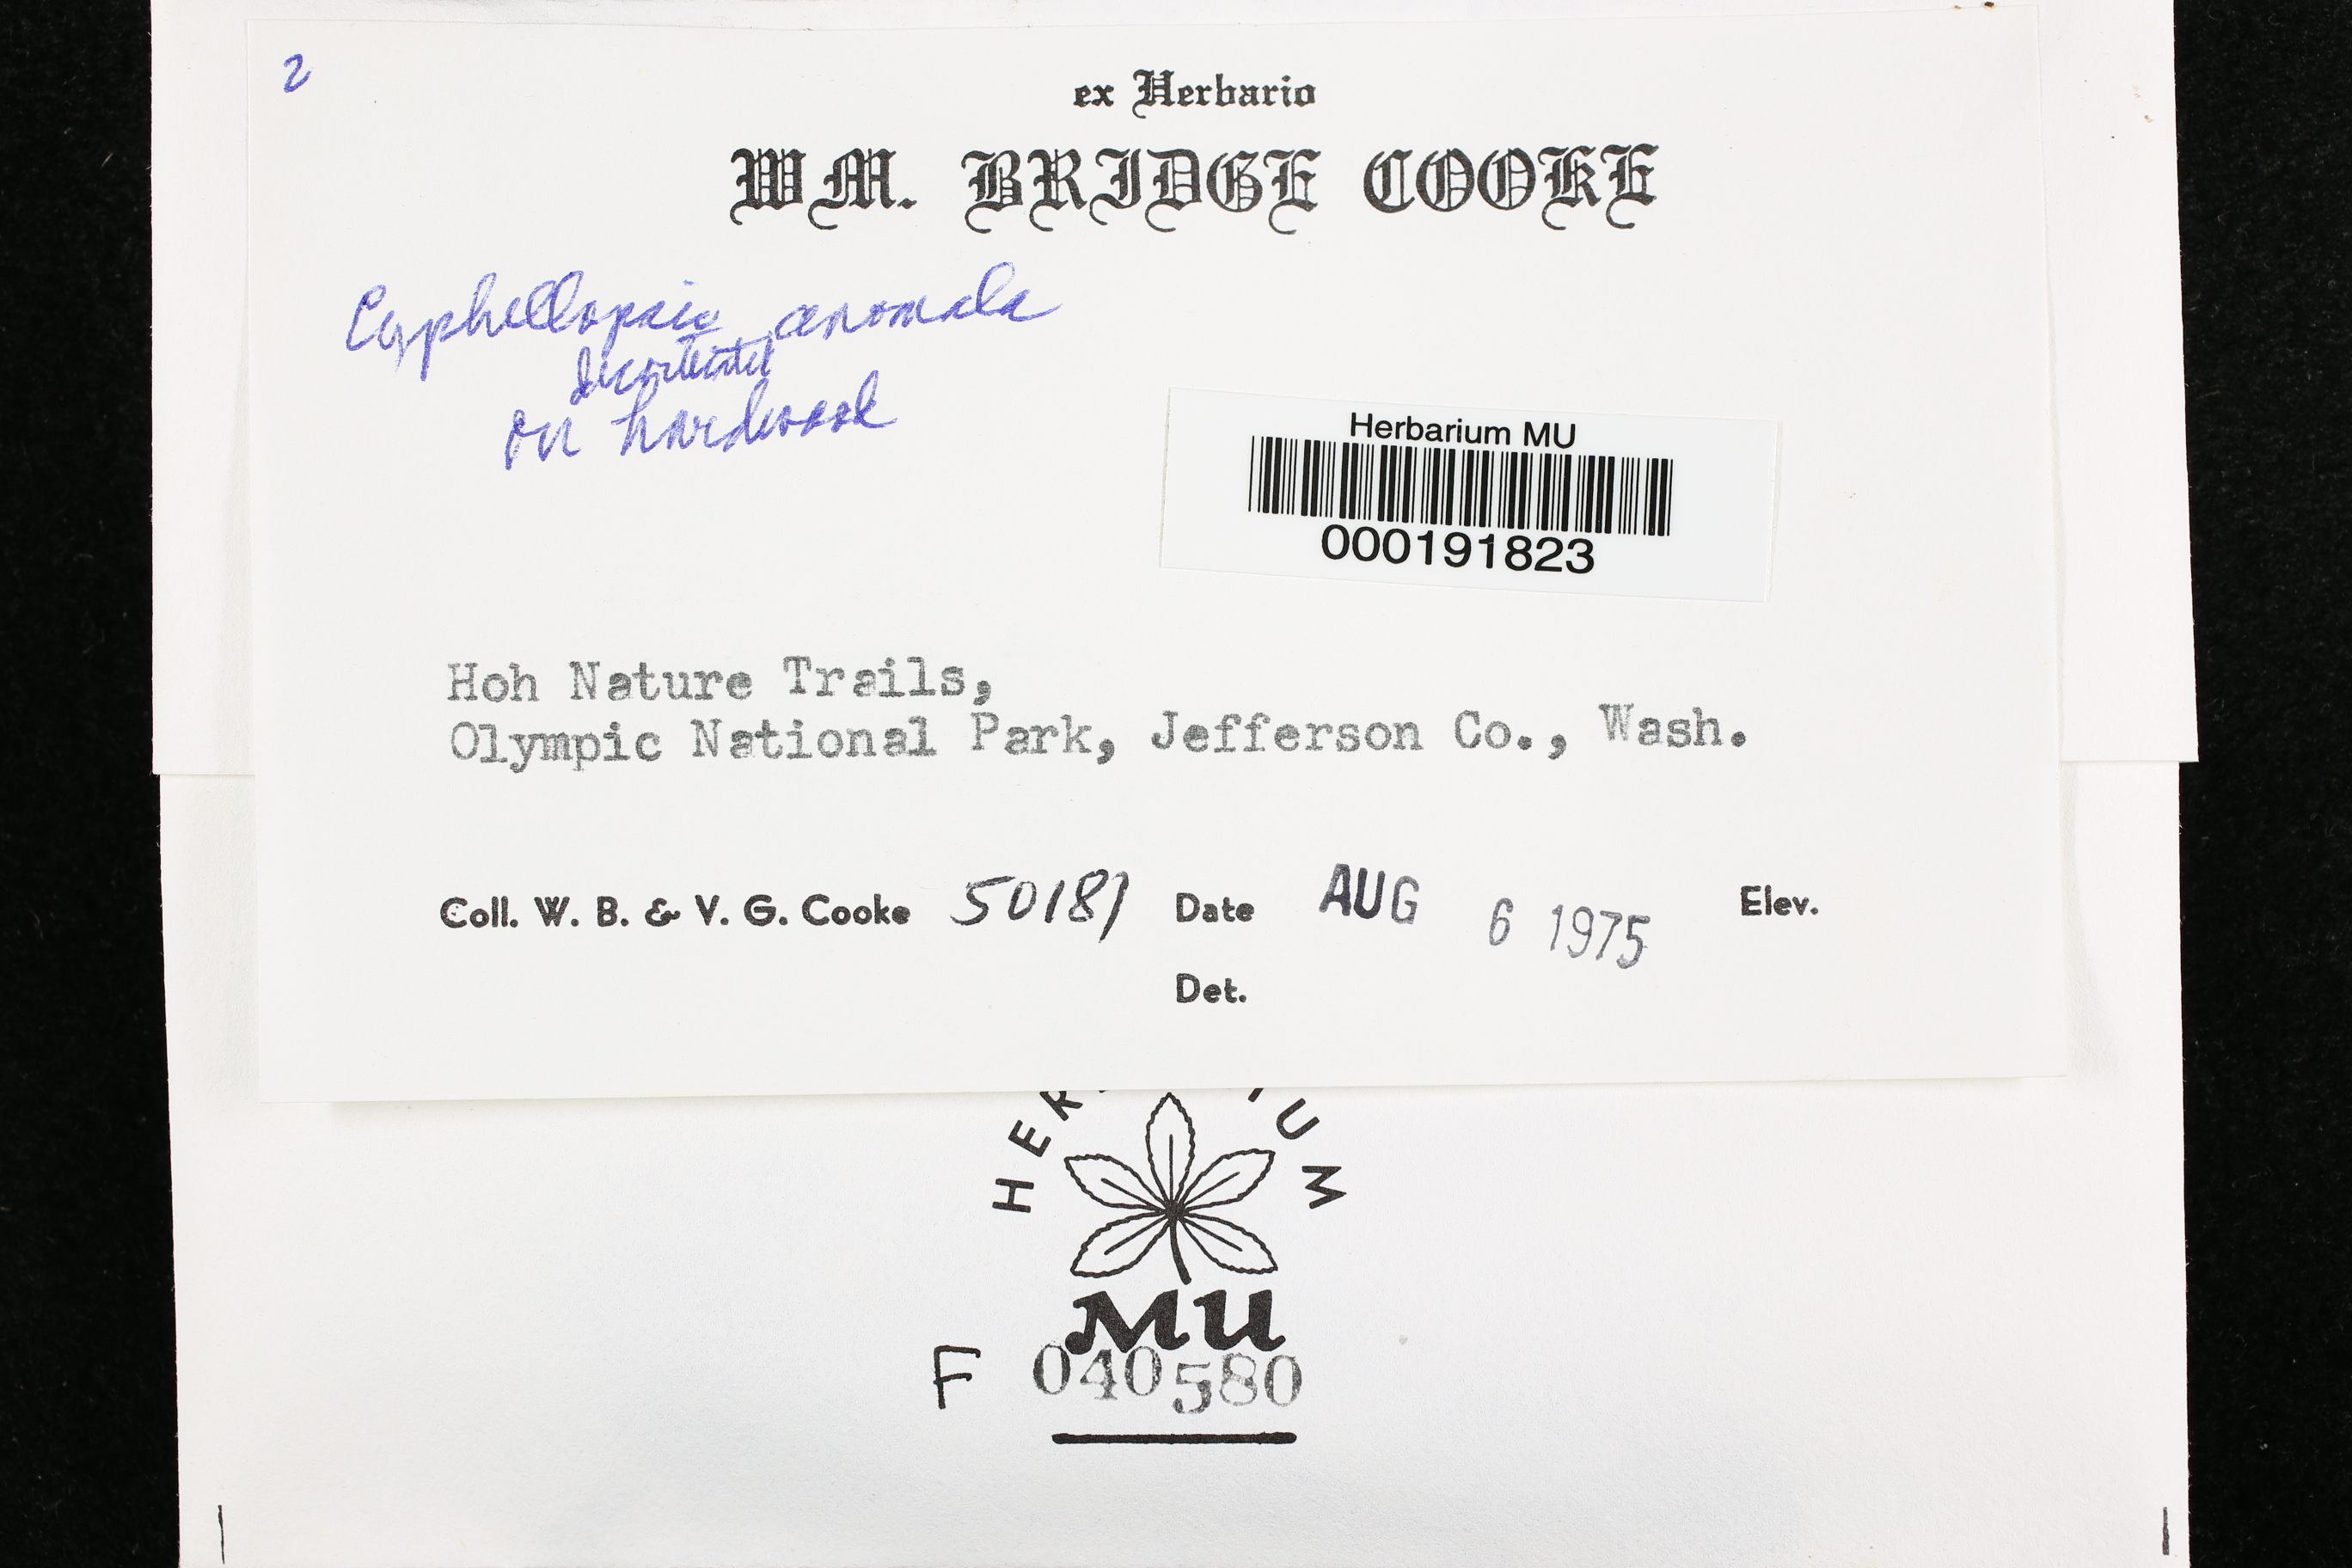 2
ex Herbario
WM. BRIDGE COOKE
Cyphellopsis anomala
decorticated
on hardwood
Herbarium MU
000191823
Hoh Nature Trails,
Olympic National Park, Jefferson Co., Wash.
Coll. W. B. & V. G. Cooke 50181 Date AUG 6 1975 Elev.
Det.
MU
F 040580